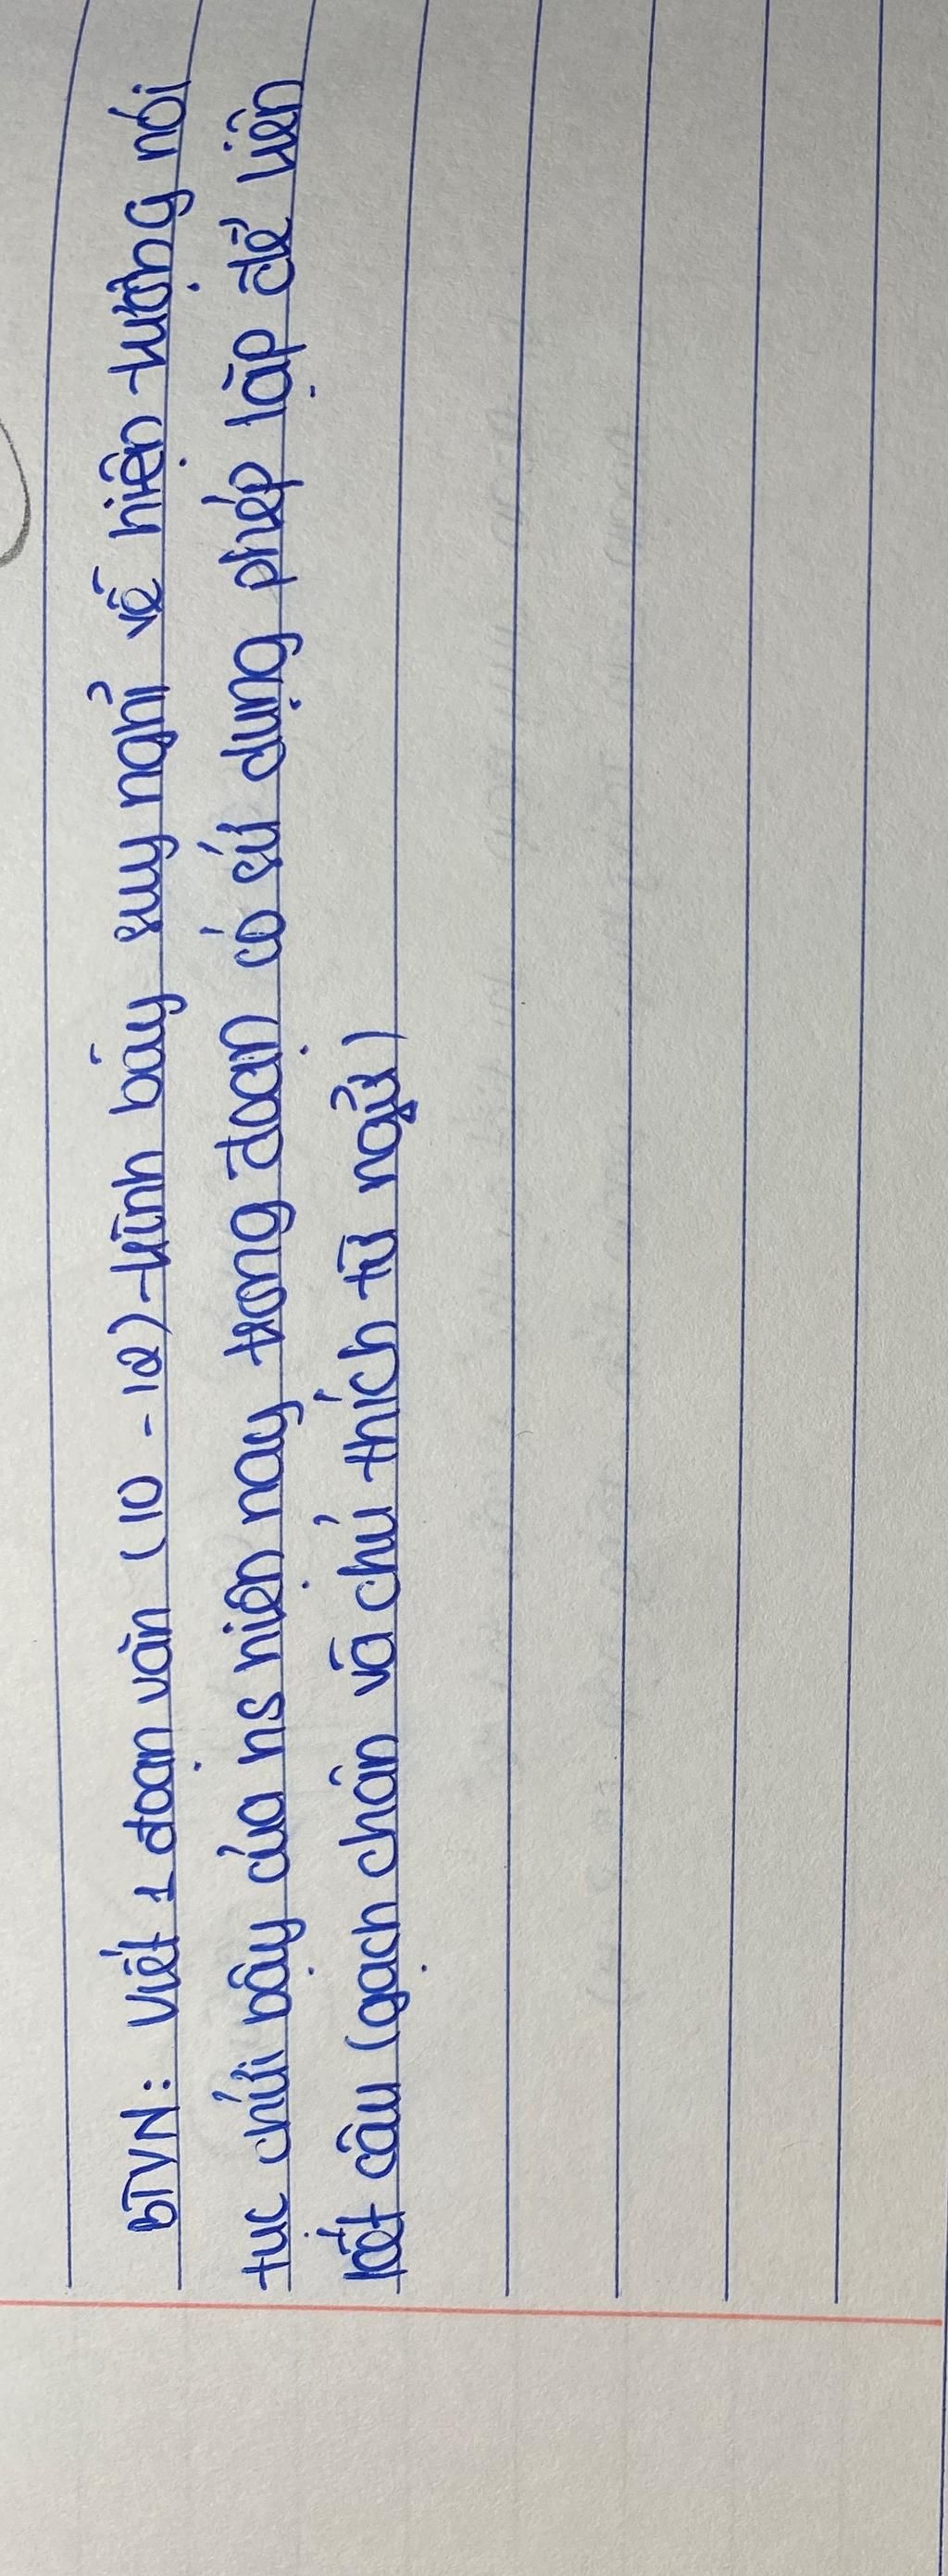 BTVN: Viết 1 đoạn văn (10 - 12) trình bày suy nghĩ về hiện tượng nói
tục chửi bậy của hs hiện nay trong đoạn có sử dụng phép lặp để liên
kết câu (gạch chân và chú thích từ ngữ)